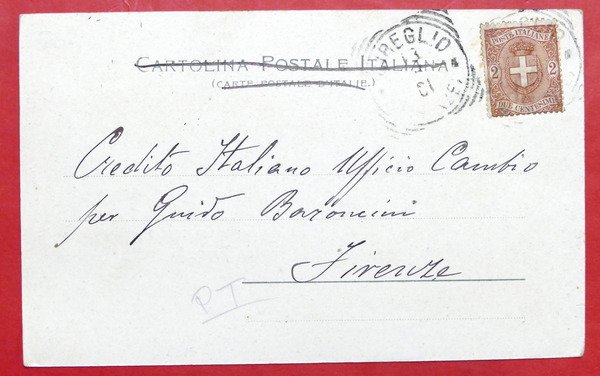 CARTOLINA POSTALE ITALIANA
(CARTE POSTALE D'ITALIE)
REGLIO
13
01
POSTE ITALIANE
2 2
DUE CENTESIMI
Credito Italiano Ufficio Cambio
per Guido Baroncini
Firenze
PT